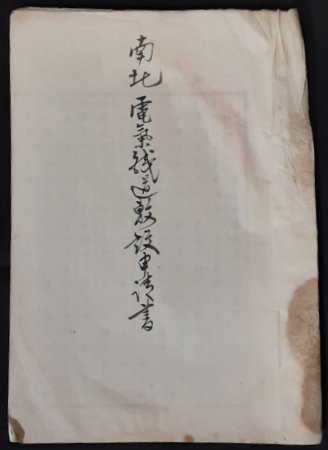 南北電氣鐵道敷設申請書